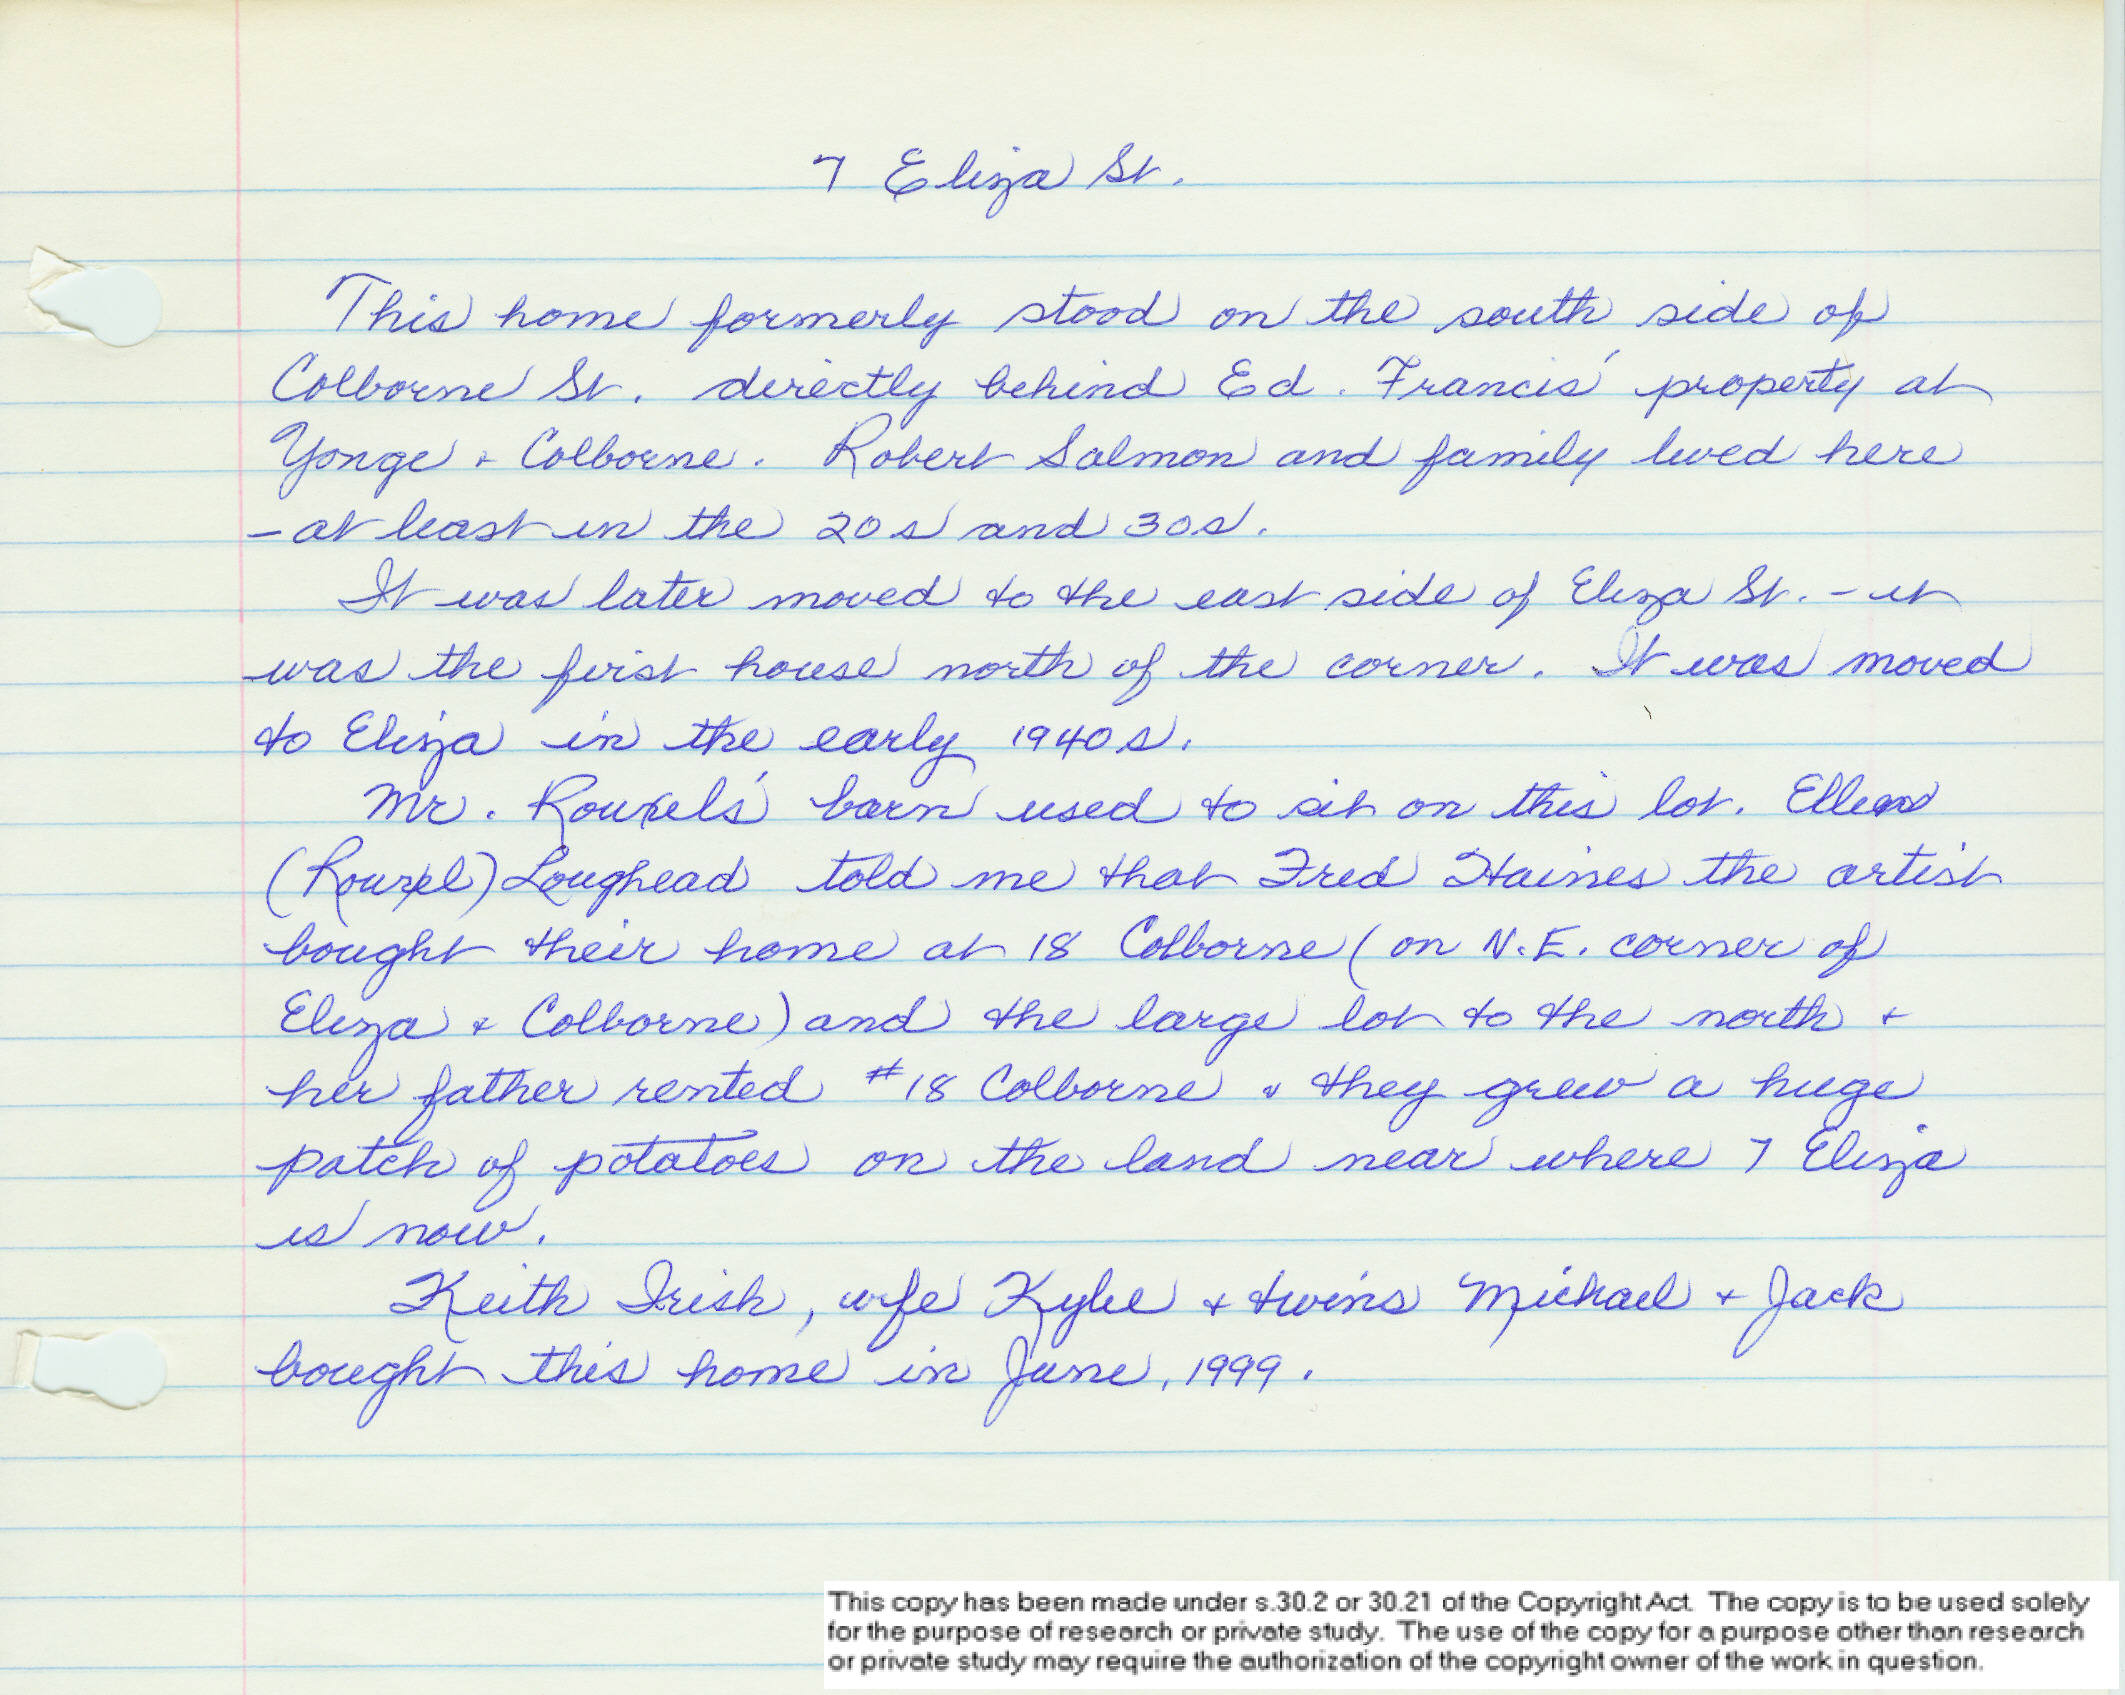 7 Eliza St.
This home formerly stood on the south side of
Colborne St. directly behind Ed. Francis' property at
Yonge + Colborne. Robert Salmon and family lived here
- at least in the 20s and 30s.
It was later moved to the east side of Eliza St. - it
was the first house north of the corner. It was moved
to Eliza in the early 1940s.
Mr. Rouxel's barn used to sit on this lot. Ellen
(Rouxel) Loughead told me that Fred Haines the artist
bought their home at 18 Colborne (on N.E. corner of
Eliza + Colborne) and the large lot to the north +
her father rented #18 Colborne + they grew a huge
patch of potatoes on the land near where 7 Eliza
is now.
Keith Irish, wife Kylie + twins Michael + Jack
bought this home in June, 1999.
This copy has been made under s.30.2 or 30.21 of the Copyright Act. The copy is to be used solely
for the purpose of research or private study. The use of the copy for a purpose other than research
or private study may require the authorization of the copyright owner of the work in question.